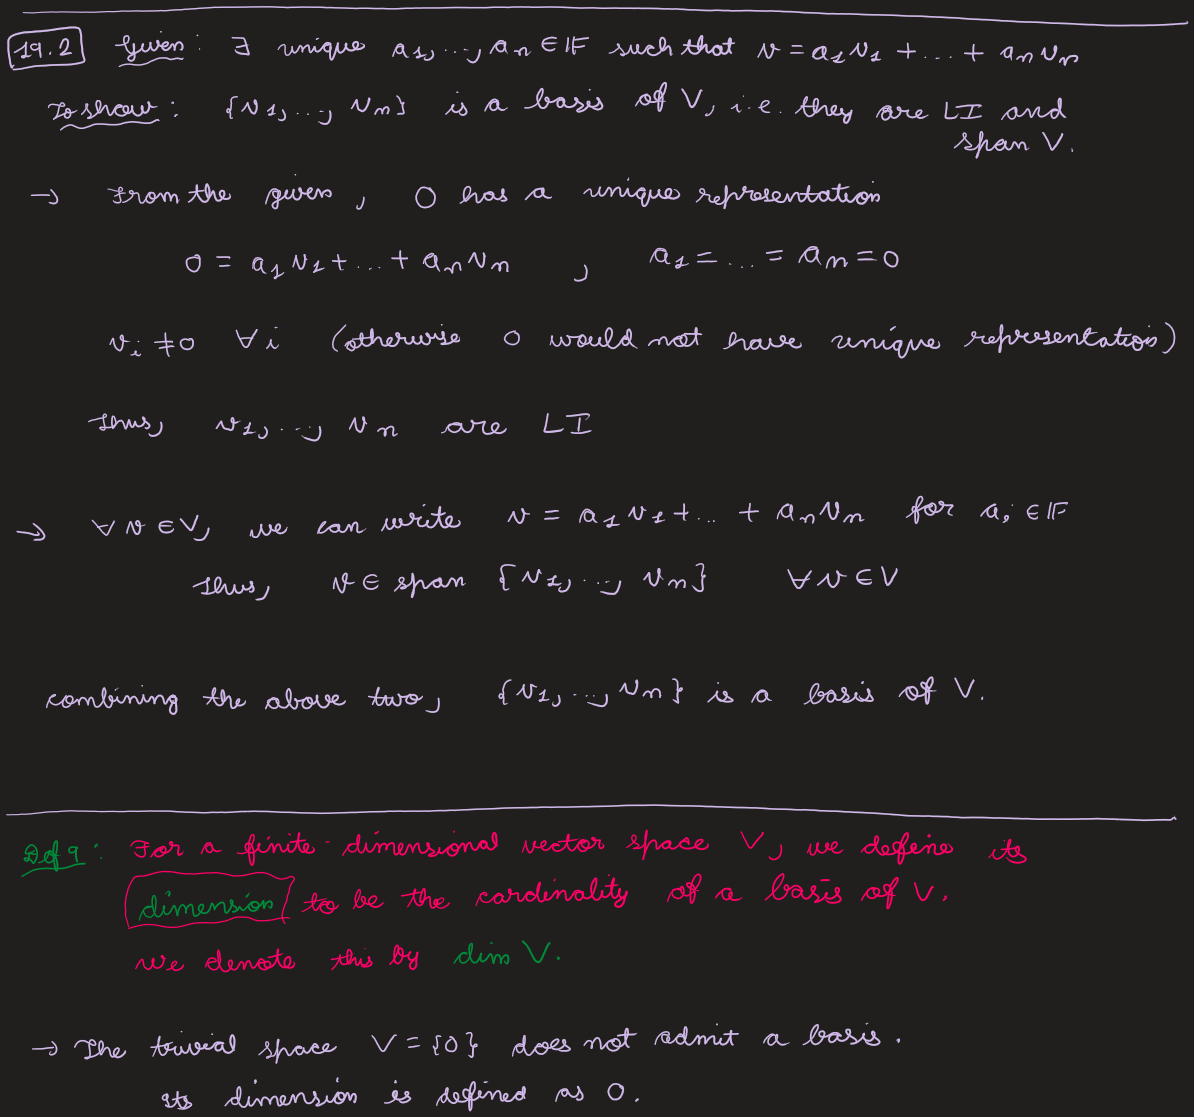 19.2 Given: ∃ unique a₁, ..., aₙ ∈ 𝔽 such that v = a₁v₁ + ... + aₙvₙ
To show: {v₁, ..., vₙ} is a basis of V, i.e. they are LI and
span V.
→ From the given, 0 has a unique representation
0 = a₁v₁ + ... + aₙvₙ , a₁ = ... = aₙ = 0
vᵢ ≠ 0 ∀ i (otherwise 0 would not have unique representation)
Thus, v₁, ..., vₙ are LI
→ ∀ v ∈ V, we can write v = a₁v₁ + ... + aₙvₙ for aᵢ ∈ 𝔽
Thus, v ∈ span {v₁, ..., vₙ} ∀ v ∈ V
combining the above two, {v₁, ..., vₙ} is a basis of V.
Def 9: For a finite-dimensional vector space V, we define its
dimension to be the cardinality of a basis of V.
we denote this by dim V.
→ The trivial space V = {0} does not admit a basis.
Its dimension is defined as 0.